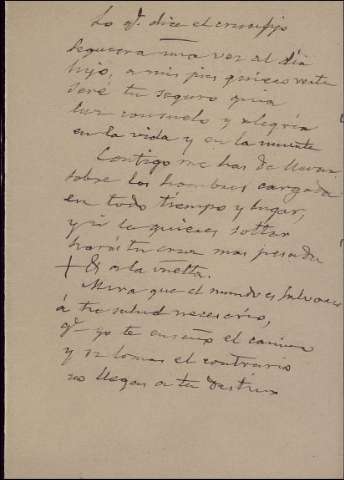 Lo q.e dice el crucifijo
Siquiera una vez al día
hijo, a mis pies quiero verte
seré tu seguro guia
luz consuelo y alegría
en la vida y en la muerte
Contigo me has de llevar
sobre los hombros cargado
en todo tiempo y lugar,
y si le quieres soltar
harás tu cruz mas pesada
+ a la vuelta.
Mira que el mundo es
á tu salud necesario,
q.e yo te enseño el camino
y si tomas el contrario
no llegas a tu destino